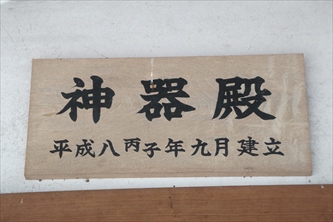 神器殿
平成八丙子年九月建立